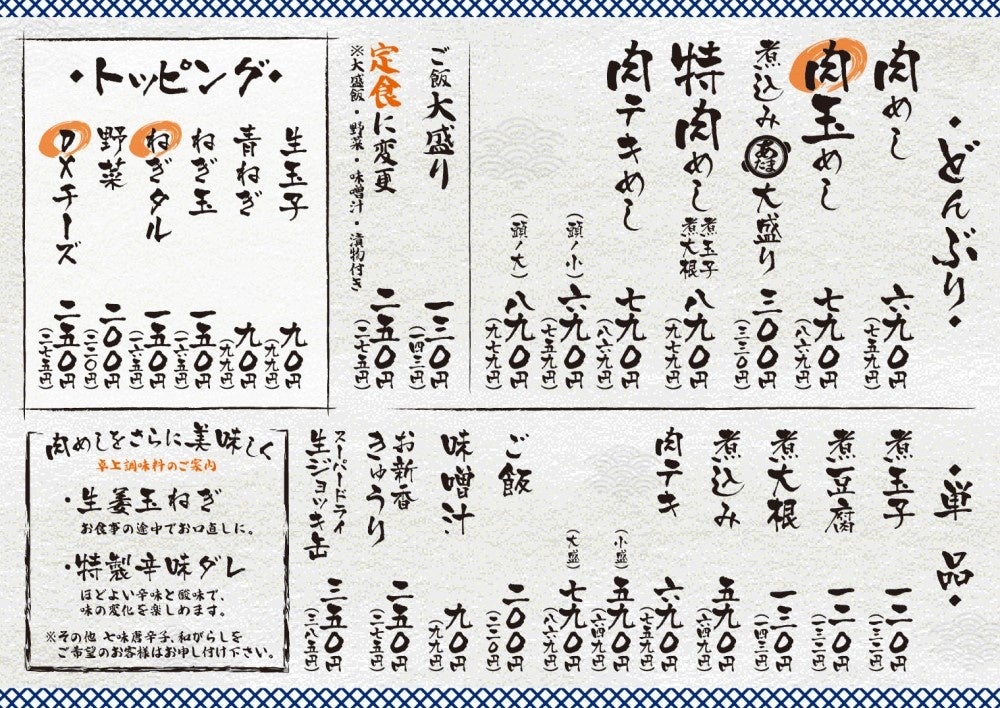 ・どんぶり・
肉めし 六九〇円
(七五九円)
肉玉めし 七九〇円
(八六九円)
煮込みあたま大盛り 三〇〇円
(三三〇円)
特肉めし 煮玉子
煮大根 八九〇円
(九七九円)
肉テキめし 七九〇円
(八六九円)
(頭ノ小) 六九〇円
(七五九円)
(頭ノ大) 八九〇円
(九七九円)
ご飯大盛り 一三〇円
(一四三円)
定食に変更 二五〇円
(二七五円)
※大盛飯・野菜・味噌汁・漬物付き
・トッピング・
生玉子 九〇円
(九九円)
青ねぎ 九〇円
(九九円)
ねぎ玉 一五〇円
(一六五円)
ねぎタル 一五〇円
(一六五円)
野菜 二〇〇円
(二二〇円)
DXチーズ 二五〇円
(二七五円)
・単品・
煮玉子 一二〇円
(一三二円)
煮豆腐 一二〇円
(一三二円)
煮大根 一三〇円
(一四三円)
煮込み 五九〇円
(六四九円)
肉テキ 六九〇円
(七五九円)
(小盛) 五九〇円
(六四九円)
(大盛) 七九〇円
(八六九円)
ご飯 二〇〇円
(二二〇円)
味噌汁 九〇円
(九九円)
お新香
きゅうり 二五〇円
(二七五円)
スーパードライ
生ジョッキ缶 三五〇円
(三八五円)
肉めしをさらに美味しく
卓上調味料のご案内
・生姜玉ねぎ
お食事の途中でお口直しに。
・特製辛味ダレ
ほどよい辛味と酸味で、
味の変化を楽しめます。
※その他 七味唐辛子、和がらしを
ご希望のお客様はお申し付け下さい。